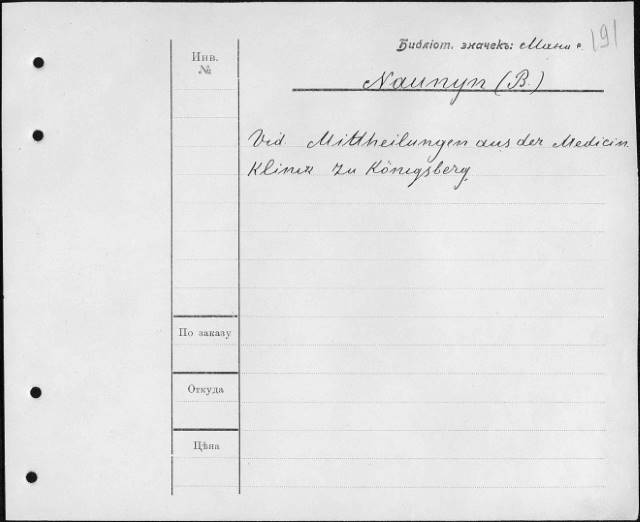 Библіот. значекъ:
191
Инв.
№
Naunyn (B.)
Vid. Mittheilungen aus der Medicin.
Klinik zu Königsberg
По заказу
Откуда
Цѣна